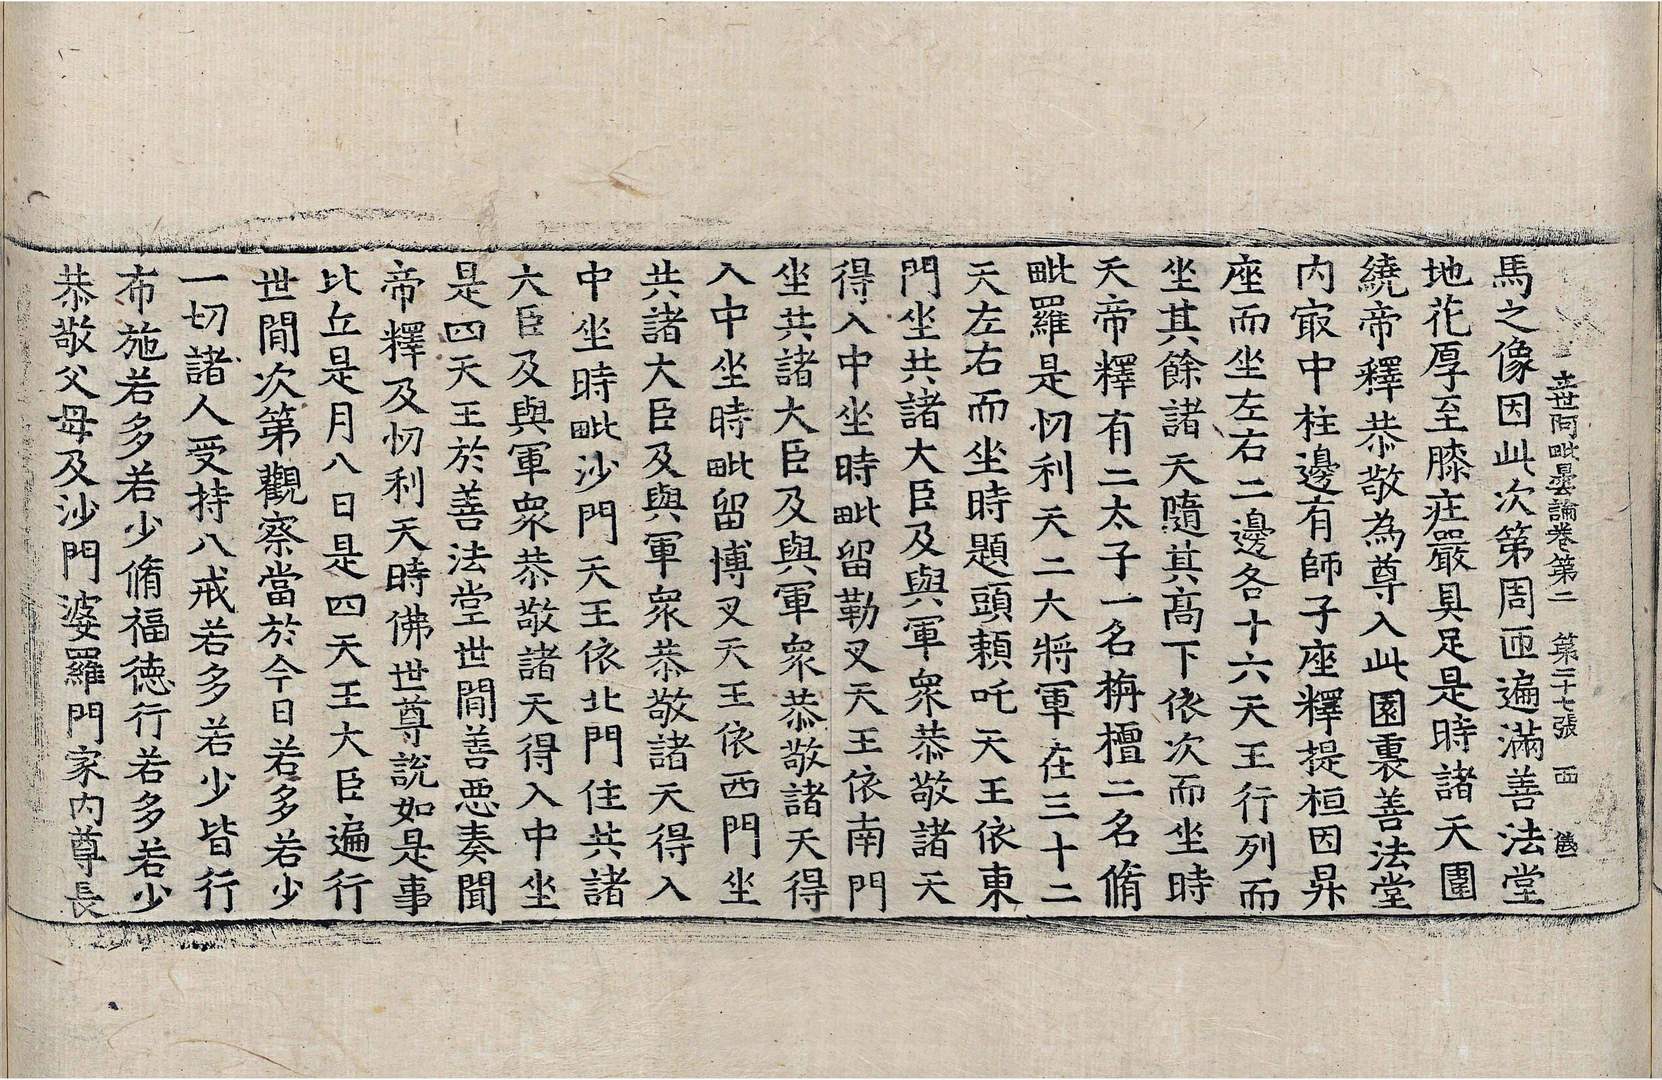 立世阿毗曇論卷第二 第二十七張 西 儀
馬之像因此次第周匝遍滿善法堂
地花厚至膝莊嚴具足是時諸天圍
繞帝釋恭敬為尊入此園裏善法堂
内㝡中柱邊有師子座釋提桓因昇
座而坐左右二邊各十六天王行列而
坐其餘諸天隨其高下依次而坐時
天帝釋有二太子一名栴檀二名脩
毗羅是忉利天二大將軍在三十二
天左右而坐時題頭頼吒天王依東
門坐共諸大臣及與軍衆恭敬諸天
得入中坐時毗留勒叉天王依南門
坐共諸大臣及與軍衆恭敬諸天得
入中坐時毗留博叉天王依西門坐
共諸大臣及與軍衆恭敬諸天得入
中坐時毗沙門天王依北門住共諸
大臣及與軍衆恭敬諸天得入中坐
是四天王於善法堂世間善惡奏聞
帝釋及忉利天時佛世尊說如是事
比丘是月八日是四天王大臣遍行
世間次第觀察當於今日若多若少
一切諸人受持八戒若多若少皆行
布施若多若少脩福德行若多若少
恭敬父母及沙門婆羅門家内尊長